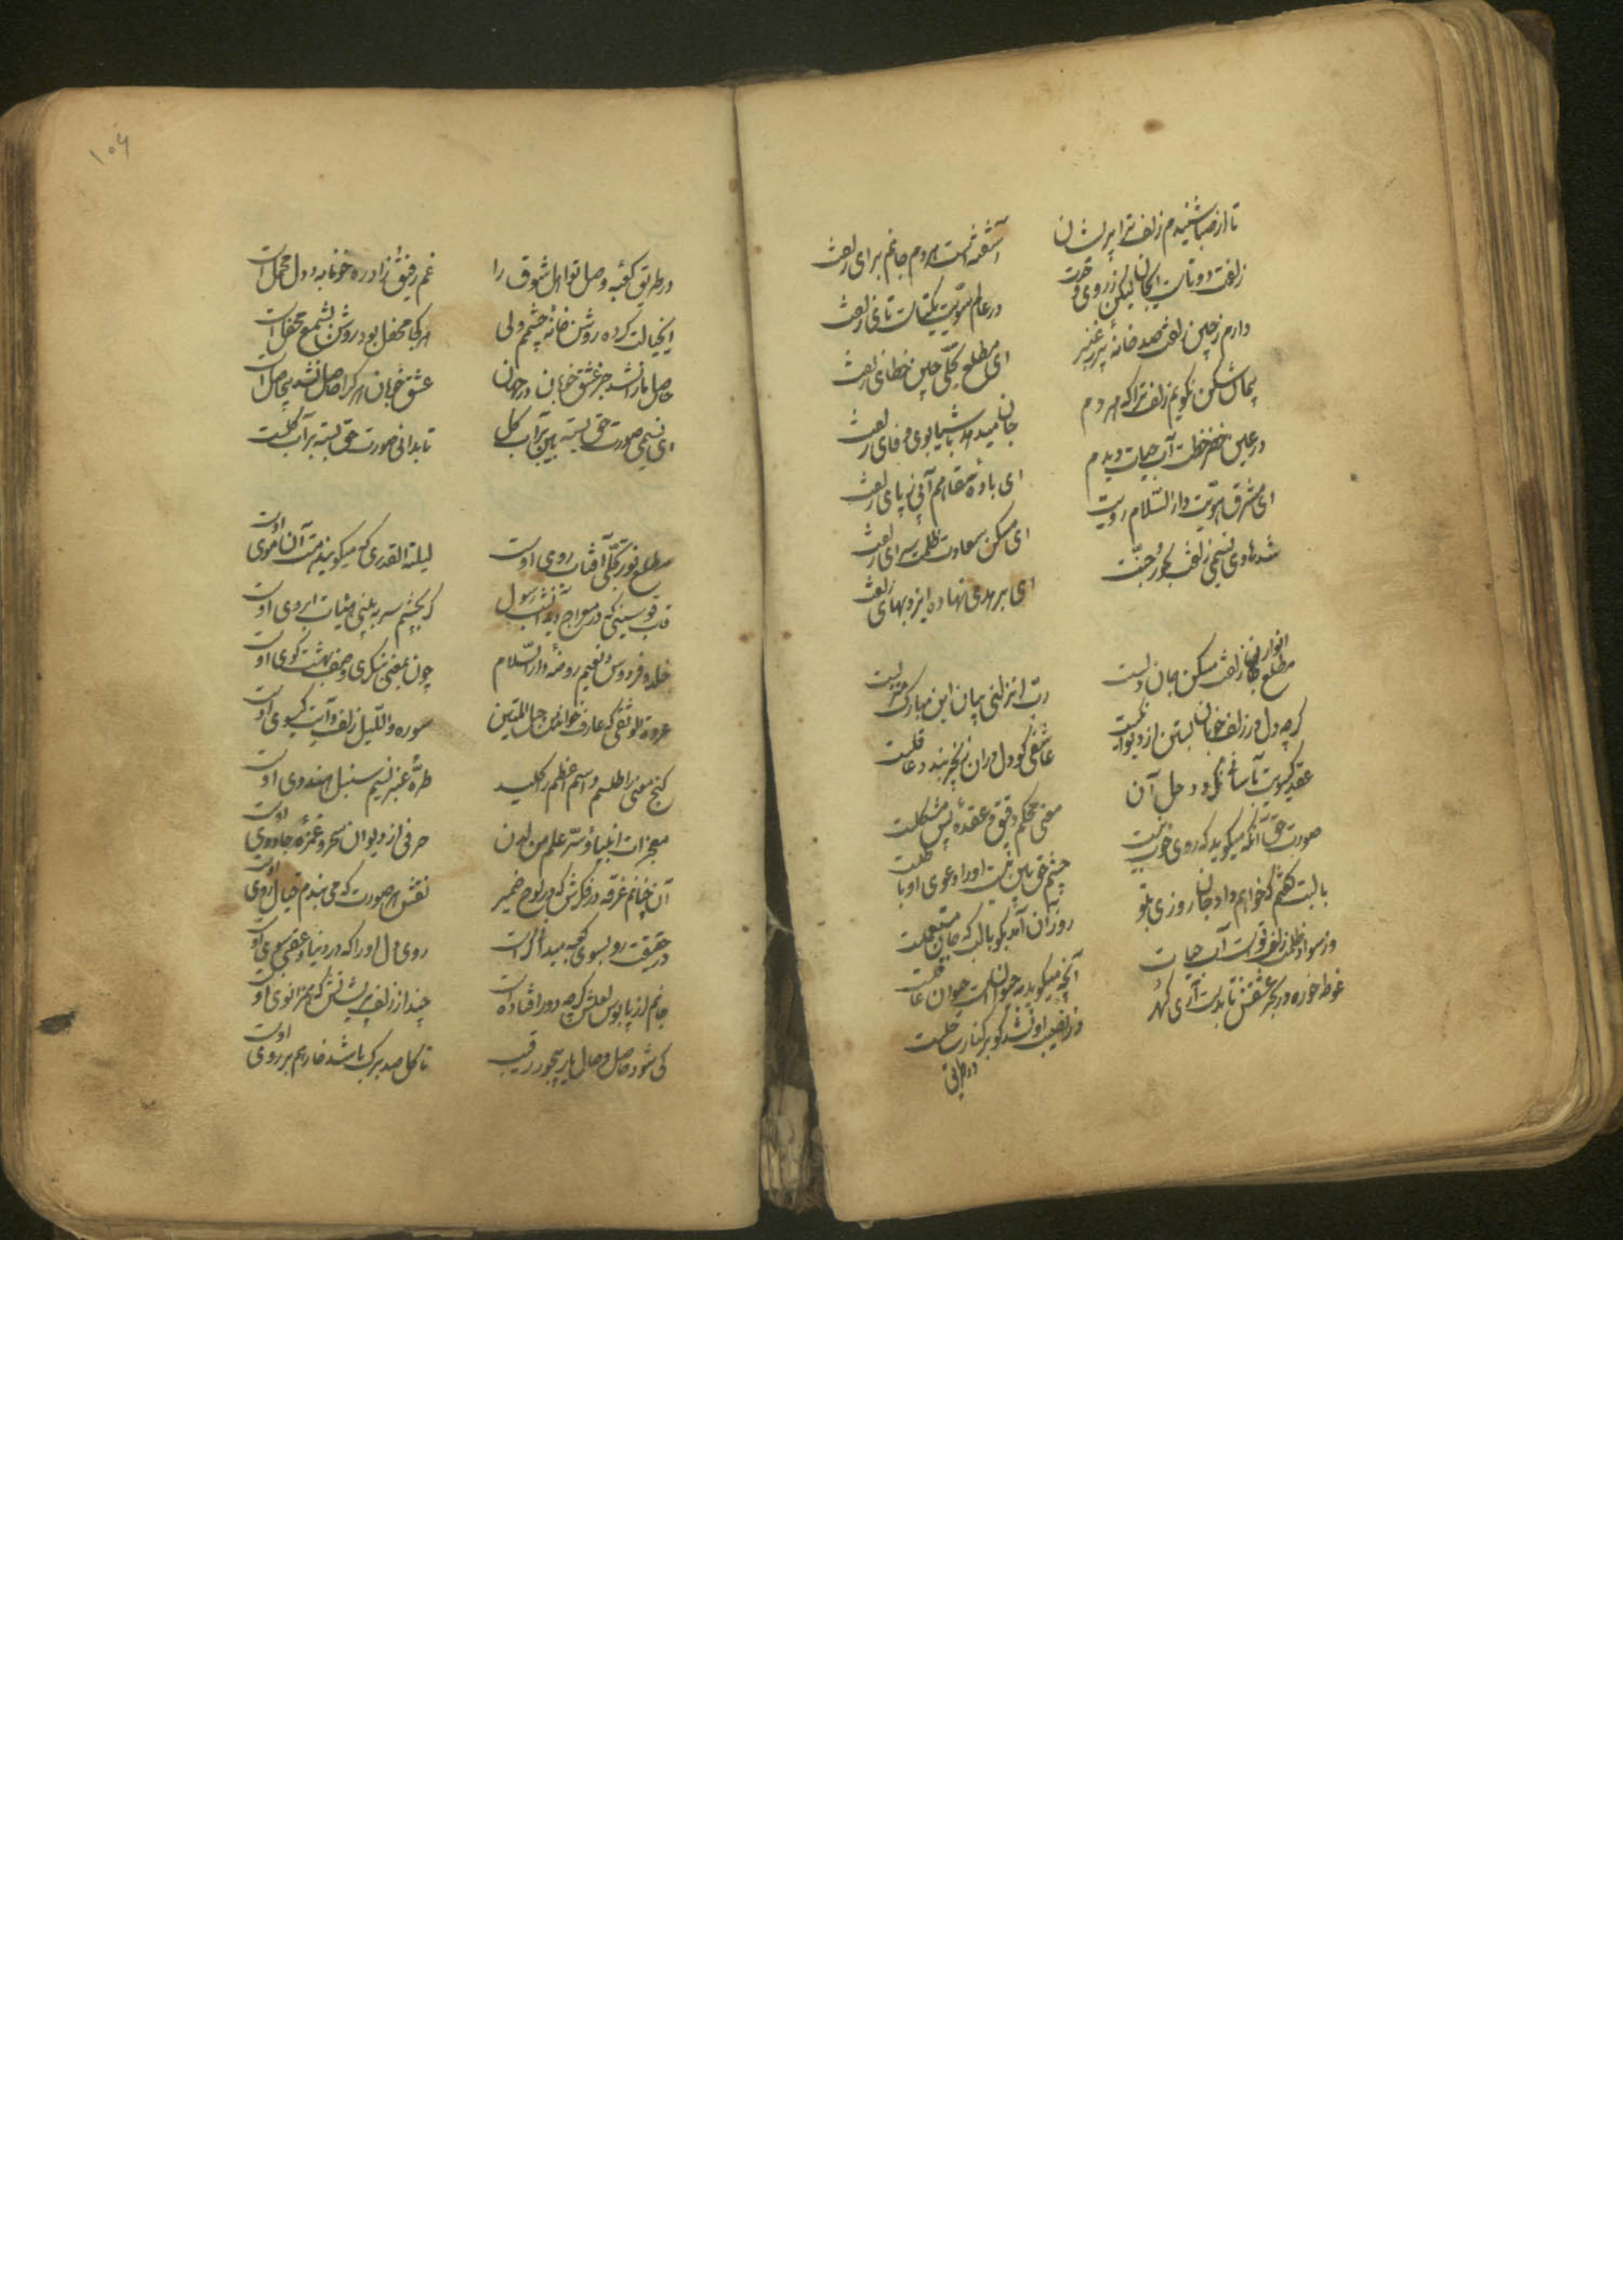 تا از صبا شنیدم زلف ترا پریشان
آشفته است هردم جانم برای زلفت
زلفت دوتاست ای جان لیکن ز روی وحدت
در عالم هویت یکتاست تای زلفت
دارم ز چین زلفت صد خانه پر ز عنبر
ای مطلع تجلی چین خطای زلفت
پیمان شکن نگویم زلف ترا که هر دم
جان میدهد بوی وفای زلفت
در عین خضر خطت آب حیات دیدم
ای باده سقاهم آبی ز پای زلفت
ای مشرق هویت دار السلام رویت
ای مسکن سعادت ظلمت سرای زلفت
شد هادی نسیمی زلفت بحور جنت
ای بر هدی نهاده ایزد بهای زلفت
مطلع انوار زلفت مسکن جان و دلست
رب انزلنی بیان این مبارک منزلست
گرچه دل در زلف خوبان بستن از دیوانگیست
عاشقی کو دل در آن زنجیر بندد عاقلست
عقد گیسویت بآسانی نگردد حل آن
معنی محکم دقیق و عقده بس مشکلست
صورت حق آنکه میگوید که روی خوب نیست
چشم حق بین نیست او را دعوی او باطلست
با لبت گفتم که خواهم داد جان روزی بتو
روز آن آمد بگو با لب که جان مستعجلست
در سواد ظلمت زلف تو است آب حیات
آنچه میگوید نه حیوان است حیوان غافلست
غوطه خورده در بحر عشقش تا بدست آری گهر
در نصیب او نشد کو بر کنار ساحلست
در طریق
۱۰۶
در طریق کعبه وصل تو اهل شوق را
غم رفیق زاد ره خونابه و دل محمل است
ای خیالت کرده روشن خانه چشمم ولی
هر کجا محفل بود روشن بشمع محفل است
حاصل ما را نشد جز عشق خوبان در جهان
عشق خوبان هر کرا حاصل نشد بیحاصل است
ای نسیمی صورت حق بسته بین بر آب گل
تا بدانی صورت حق بسته بر آب گلست
مطلع نور تجلی آفتاب روی اوست
لیلة القدری که میگویند مست آن موی اوست
قاب قوسینی که در معراج دید آن شب رسول
گر بچشم سر به بینی هیئات ابروی اوست
خلد و فردوس و نعیم روضه دار السلام
چون بمعنی بنگری وصف بهشت کوی اوست
عروة الوثقی که عارف خواندش حبل المتین
سوره واللیل زلف و آیت گیسوی اوست
گنج معنی را طلسم و اسم اعظم را کلید
طره عنبر نسیم سنبل هندوی اوست
معجزات انبیا و سر علم من لدن
حرفی از دیوان سحر و غمزه جادوی اوست
آن چنانم غرقه در فکرش که در لوح ضمیر
نقش هر صورت که می بندم خیال روی اوست
در حقیقت رو بسوی کعبه مبدأ است
روی دل او را که در دنیا و عقبی سوی اوست
جانم از پابوس لعلش گرچه دور افتاده است
چند از زلف پریشانش که همزانوی اوست
کی شود حاصل وصال یار بیجور رقیب
تا گل صد برگ باشد خار هم بر روی اوست